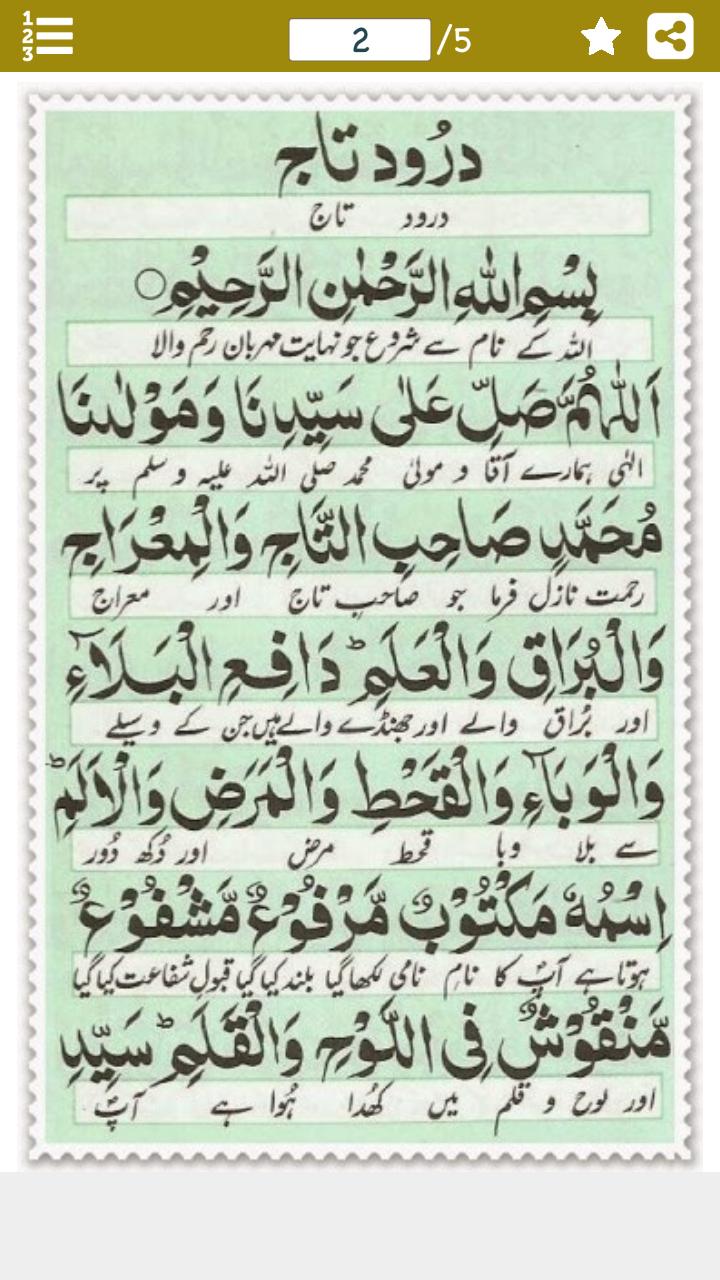 1
2
3
2
/5
درُود تاج
درود تاج
بِسْمِ اللّٰهِ الرَّحْمٰنِ الرَّحِیْمِ ○
اللہ کے نام سے شروع جو نہایت مہربان رحم والا
اَللّٰهُمَّ صَلِّ عَلٰی سَیِّدِنَا وَمَوْلٰىنَا
الٰہی ہمارے آقا و مولیٰ محمد صلی اللہ علیہ و سلم پر
مُحَمَّدٍ صَاحِبِ التَّاجِ وَالْمِعْرَاجِ
رحمت نازل فرما جو صاحبِ تاج اور معراج
وَالْبُرَاقِ وَالْعَلَمِ ؕ دَافِعِ الْبَلَآءِ
اور بُراق والے اور جھنڈے والے ہیں جن کے وسیلے
وَالْوَبَآءِ وَالْقَحْطِ وَالْمَرَضِ وَالْاَلَمِ ؕ
سے بلا وبا قحط مرض اور دُکھ دُور
اِسْمُهٗ مَكْتُوْبٌ مَّرْفُوْعٌ مَّشْفُوْعٌ
ہوتا ہے آپؐ کا نامِ نامی لکھا گیا بلند کیا گیا قبولِ شفاعت کیا گیا
مَّنْقُوْشٌ فِی اللَّوْحِ وَالْقَلَمِ ؕ سَیِّدِ
اور لوح و قلم میں کھُدا ہُوا ہے آپؐ